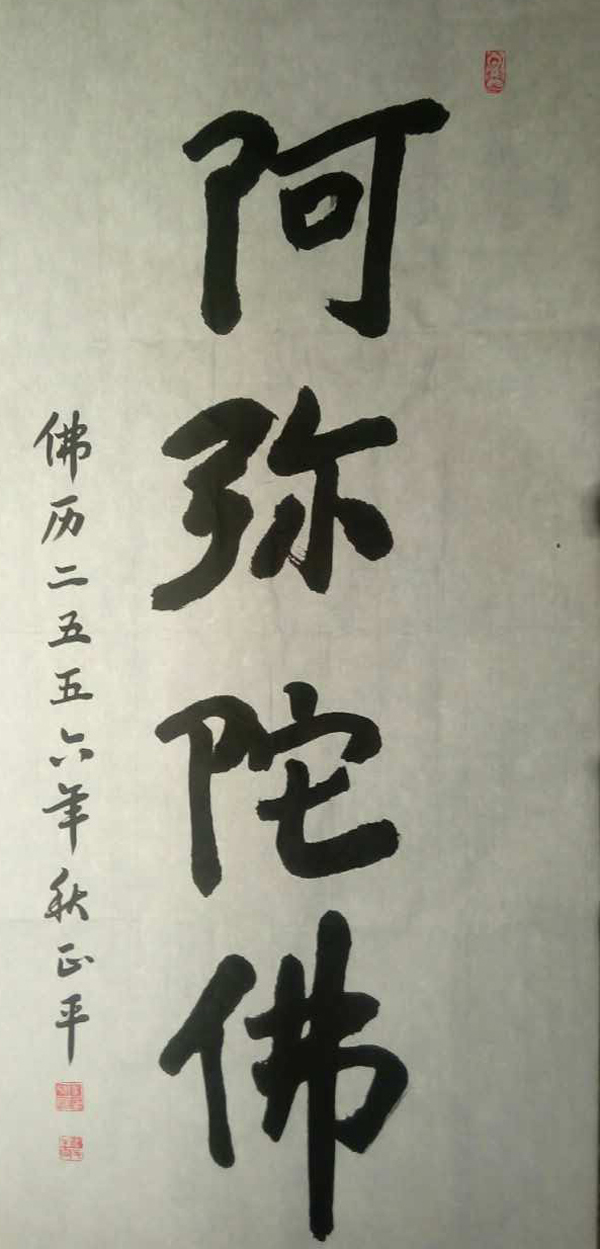 阿弥陀佛
佛历二五五六年秋正平